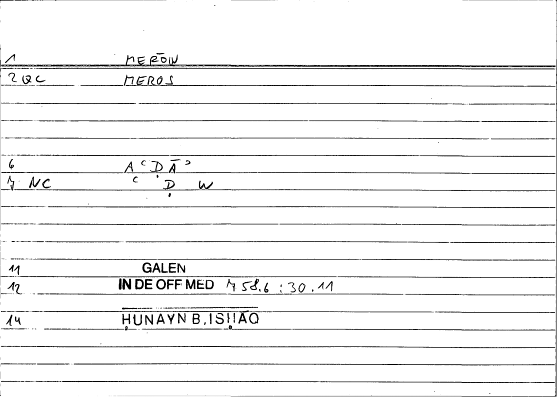 1 MERŌN
2 QC MEROS
6 AʿḌĀʾ
7 NC ʿ Ḍ W
11 GALEN
12 IN DE OFF MED 758.6 : 30.11
14 ḤUNAYN B. ISḤĀQ